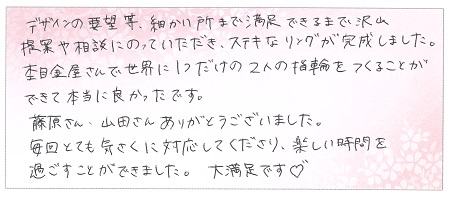 デザインの要望等、細かい所まで満足できるまで沢山
提案や相談にのっていただき、ステキなリングが完成しました。
杢目金屋さんで世界に1つだけの2人の指輪をつくることが
できて本当に良かったです。
藤原さん、山田さんありがとうございました。
毎回とても気さくに対応してくださり、楽しい時間を
過ごすことができました。 大満足です♡